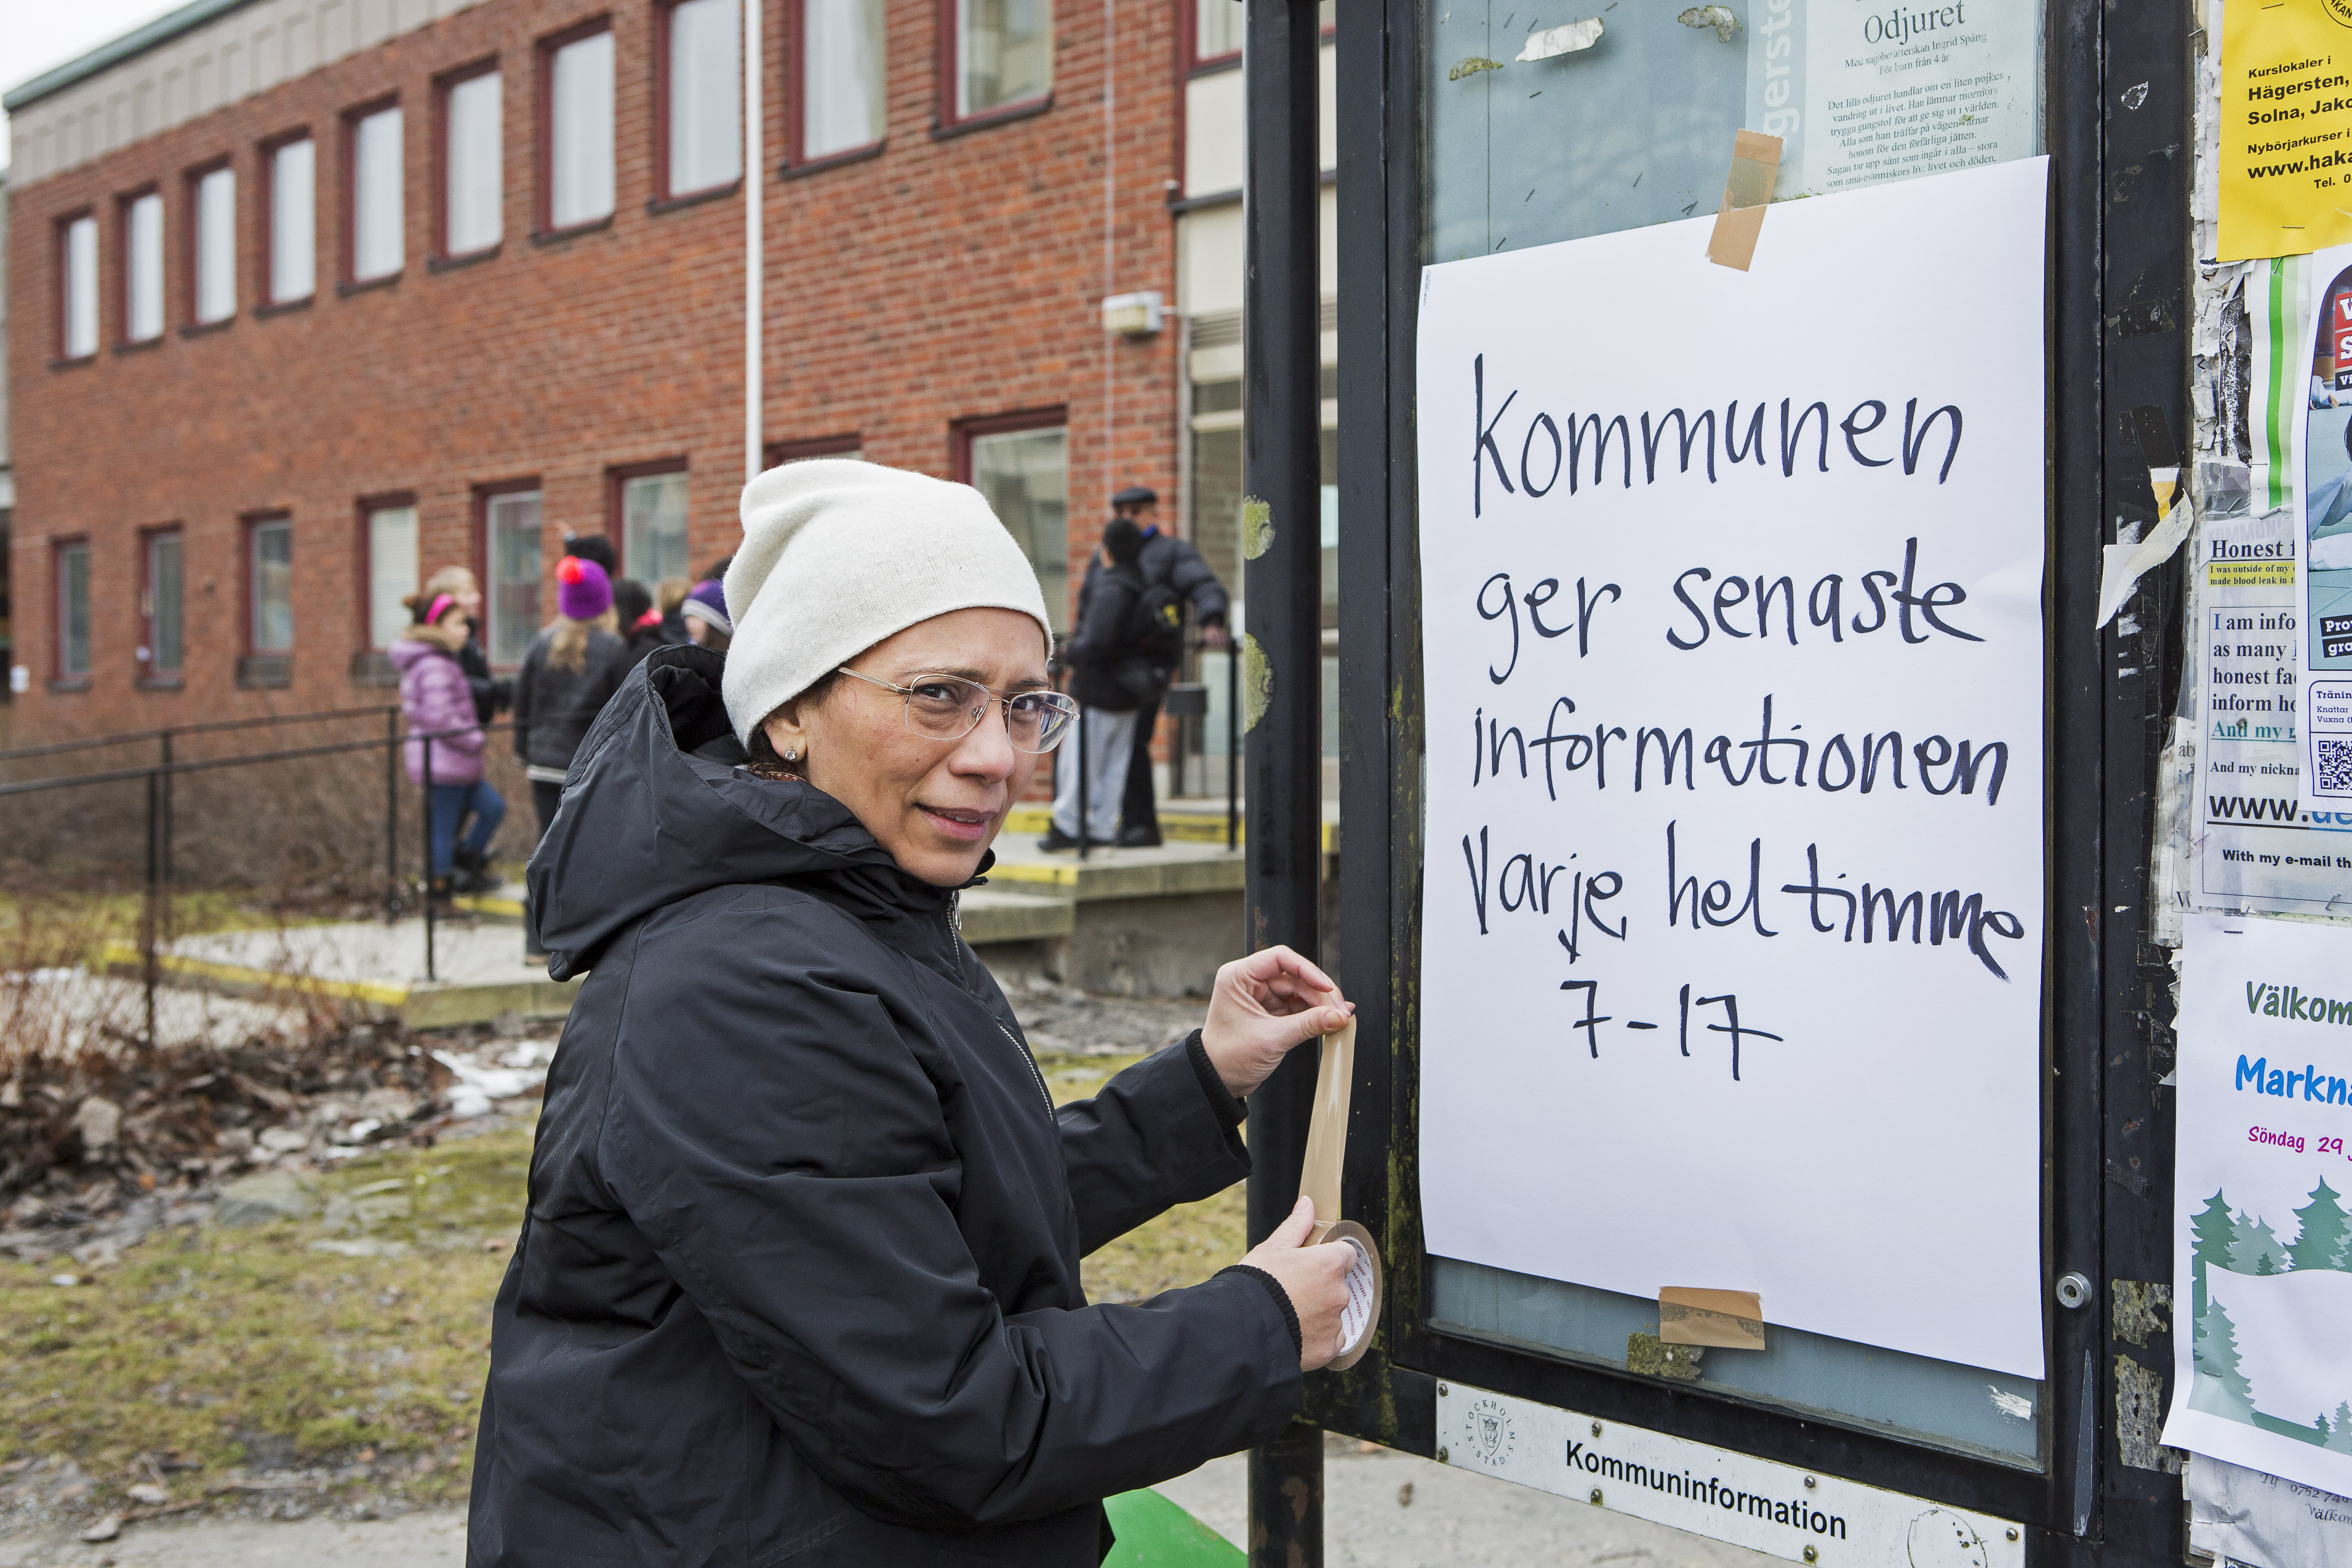 Odjuret
Med sagoberätterskan Ingrid Spång
För barn från 4 år
Det lilla odjuret handlar om en liten pojkes
vandring ut i livet. Han lämnar mormors
trygga gungstol för att ge sig ut i världen.
Alla som han träffar på vägen
honom för den förfärliga jätten.
Sagan tar upp sånt som ingår i alla – stora
som små-människors liv: livet och döden,
gerste
kommunen
ger senaste
informationen
Varje hel timme
7-17
STOCKHOLMS STAD
Kommuninformation
Kurslokaler i
Hägersten,
Solna, Jako
Nybörjarkurser i
www.haka
Tel. 0
Honest f
I was outside of my
made blood leak in
I am info
as many
honest fa
inform ho
And my
And my nickna
www.de
With my e-mail th
Pro
gra
Tränin
Knattar
Vuxna (
Välkom
Markna
Söndag 29
0762 749
Välkom